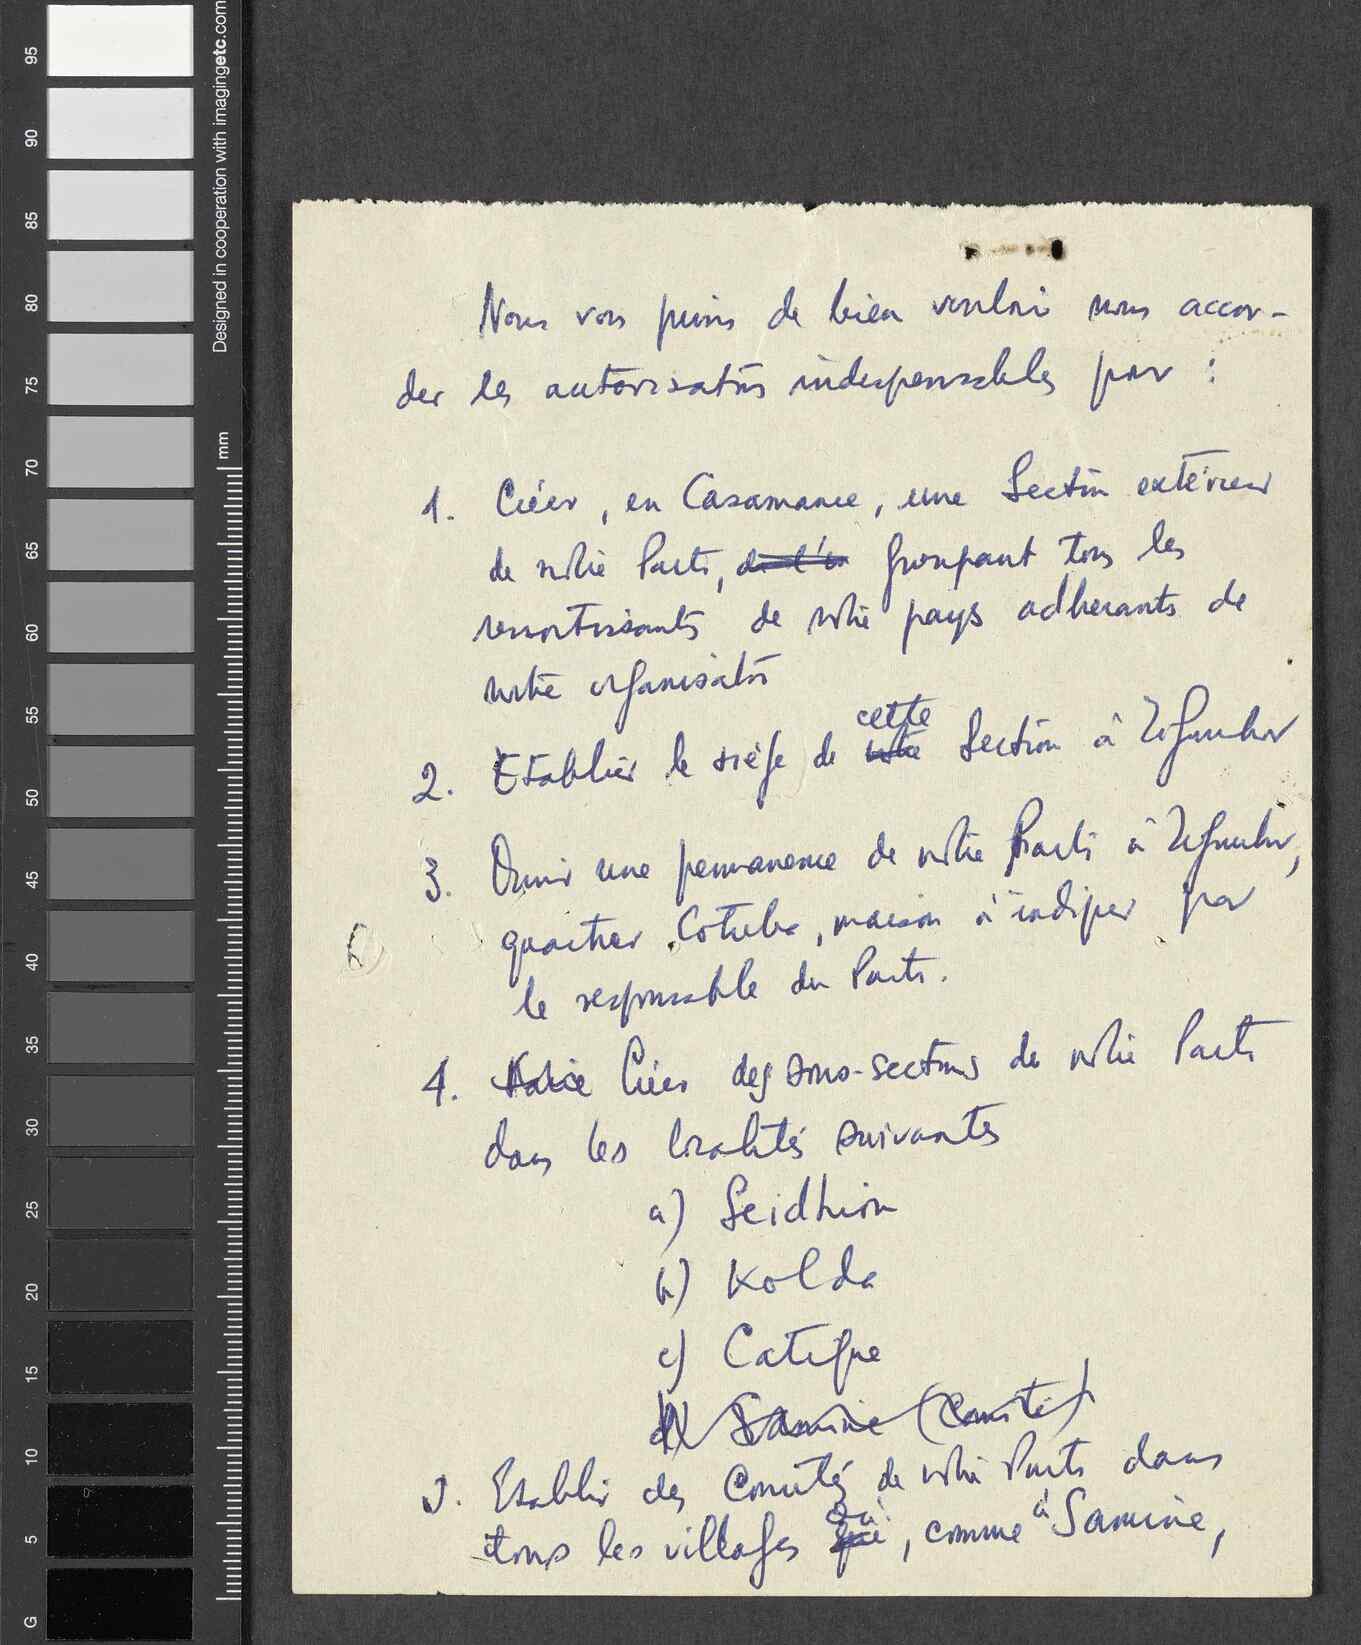 Nous vous prions de bien vouloir nous accor-
der les autorisations indispensables pour :
1. Créer, en Casamance, une Section extérieur
de notre Parti, de l'en groupant tous les
ressortissants de notre pays adherants de
notre organisation
cette
2. Etablir le siège de notre Section à Ziguinchor
3. Ouvrir une permanence de notre Parti à Ziguinchor,
quartier , maison à indiquer par
le responsable du Parti.
4. Créer des sous-sections de notre Parti
dans les localités suivantes
a) Seidhion
b) Kolda
c) Catigne
d) Samine (Comité)
5. Etablir des Comités de notre Parti dans
où
tous les villages que, comme à Samine,
95
90
85
80
75
70
65
60
55
50
45
40
35
30
25
20
15
10
5
G
Designed in cooperation with imagingetc.com
mm